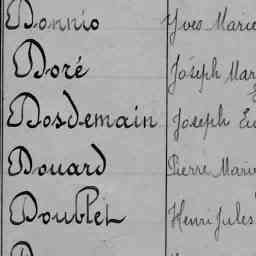 Donnio Yves Marie
Doré Joseph Mar
Dosdemain Joseph Eu
Douard Pierre Marie
Doublet Henri Jules